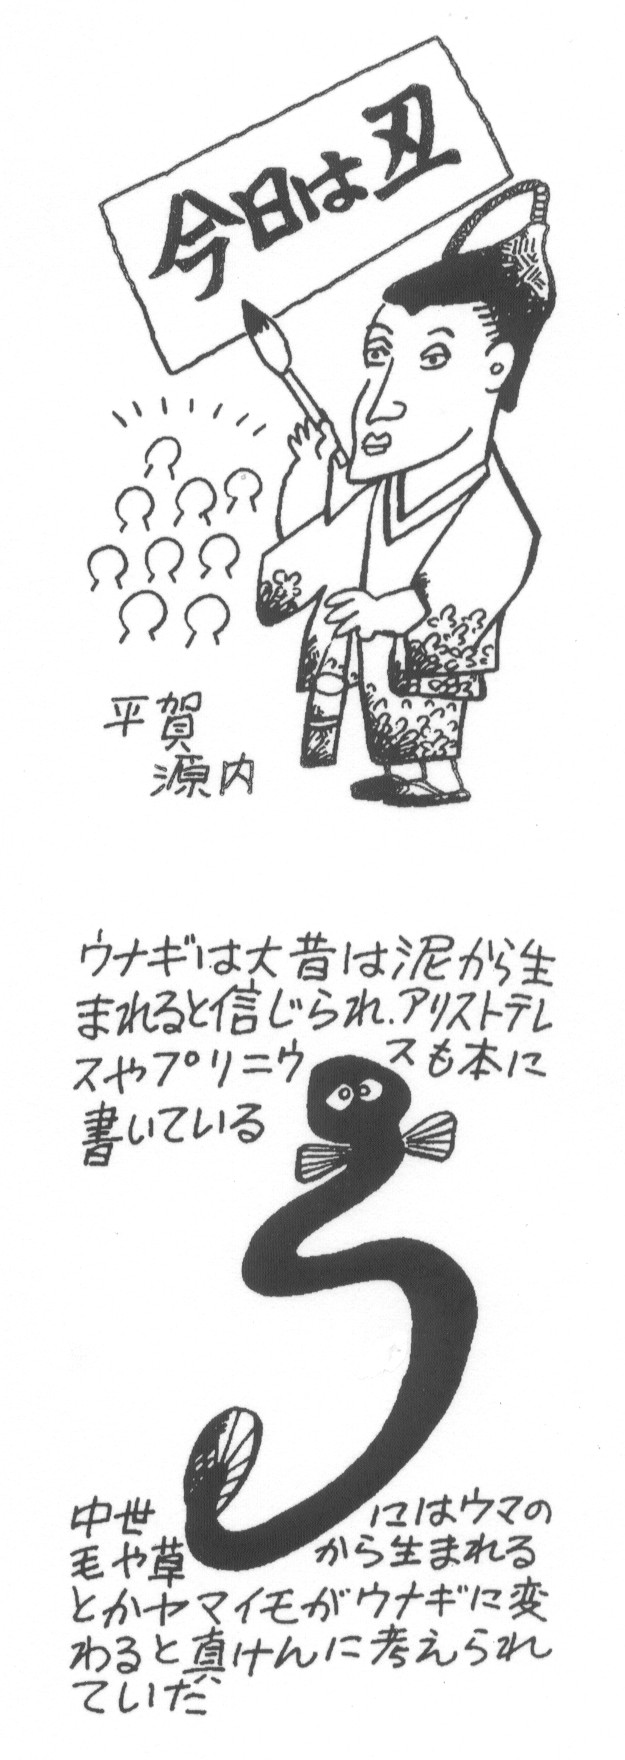 今日は丑
平賀
源内
ウナギは大昔は泥から生
まれると信じられ、アリストテレ
スやプリニウスも本に
書いている
中世にはウマの
毛や草から生まれる
とかヤマイモがウナギに変
わると真けんに考えられ
ていた